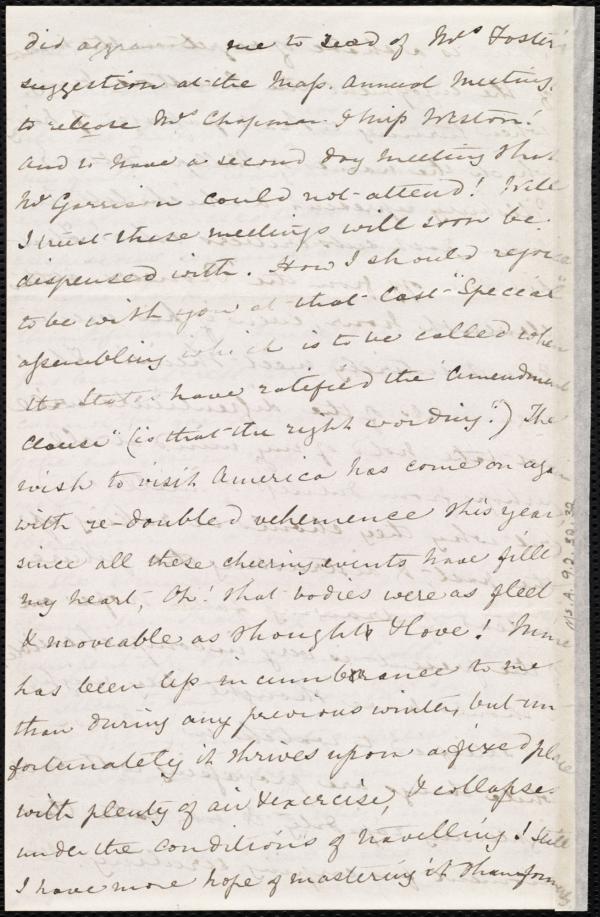 did aggravate me to read of Mrs Foster's
suggestion at the Mass. Annual Meeting,
to release Mrs Chapman & Miss Weston!
And to have a second day meeting that
Mr Garrison could not attend! Well
I trust these meetings will soon be
dispensed with. How I should rejoice
to be with you at that last "Special
assembling which is to be called when
the States have ratified the Amendment
clause" (is that the right wording?) The
wish to visit America has come on again
with re-doubled vehemence this year
since all these cheering events have filled
my heart, Oh! that bodies were as fleet
& moveable as thought & love! Mine
has been less incumbrance to me
than during any previous winter, but un
fortunately it thrives upon a fixed place
with plenty of air & exercise, I collapse
under the conditions of travelling! Still
I have more hope of mastering it than formerly
Ms. A. 9.2. 32.32